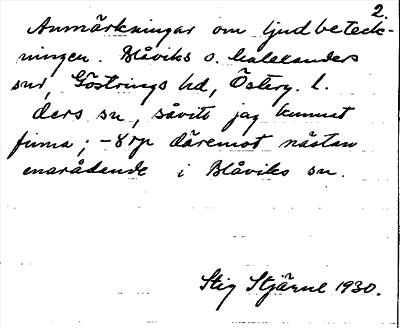 2.
Anmärkningar om ljudbeteck-
ningen. Blåviks o. Malexanders
snr, Göstrings hd, Österg. l.
ders sn, såvitt jag kunnat
finna; - däremot nästan
enarådande i Blåviks sn.
Stig Stjärne 1930.